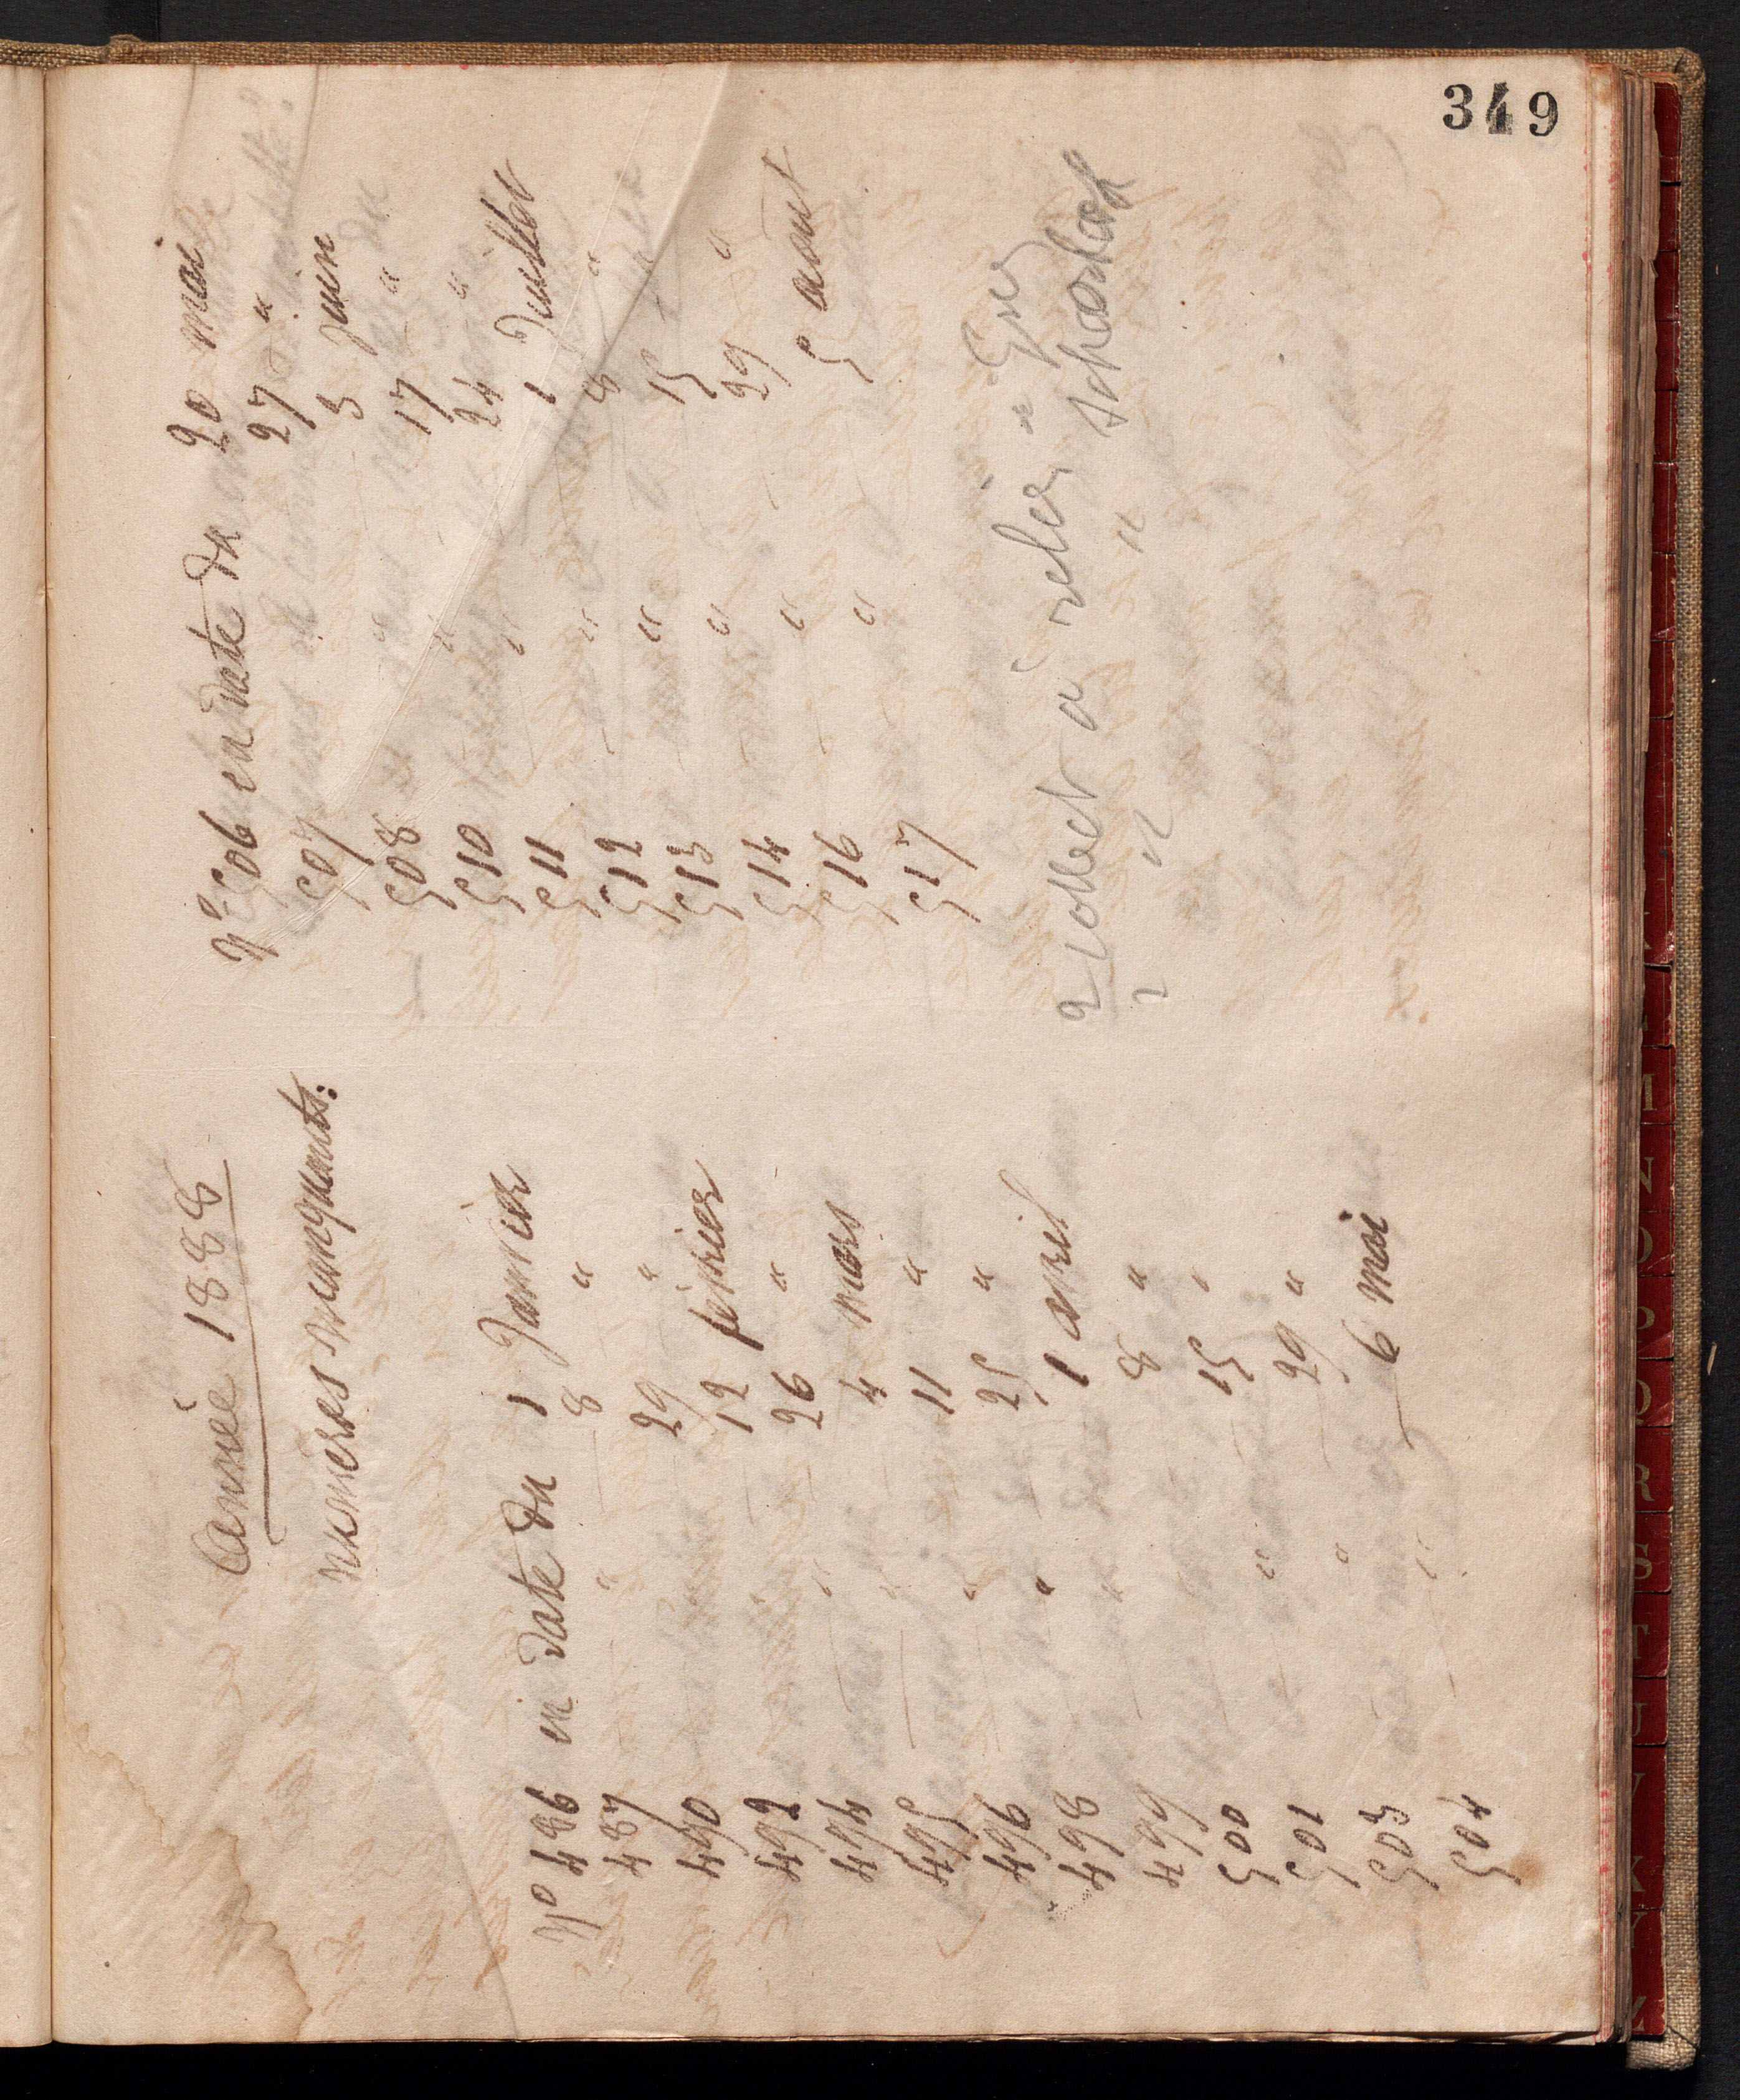 349
Année 1888
numeros manquants:
No 486 en date du 1 Janvier
487 " 8 "
490 29 "
492 " 12 fevrier
494 " 26 "
495 " 4 mars
496 " 11 "
498 " 25 "
499 " 1 avril
500 8 "
501 " 15 "
503 " 29 "
504 " 6 mai
No 506 en date du 20 mai
507 27 "
508 " 3 juin
510 " 17 "
511 " 24 "
512 " 1 Juillet
513 " 8 "
514 " 15 "
516 " 29 "
517 5 aout
2 collect à relier "
2 " "